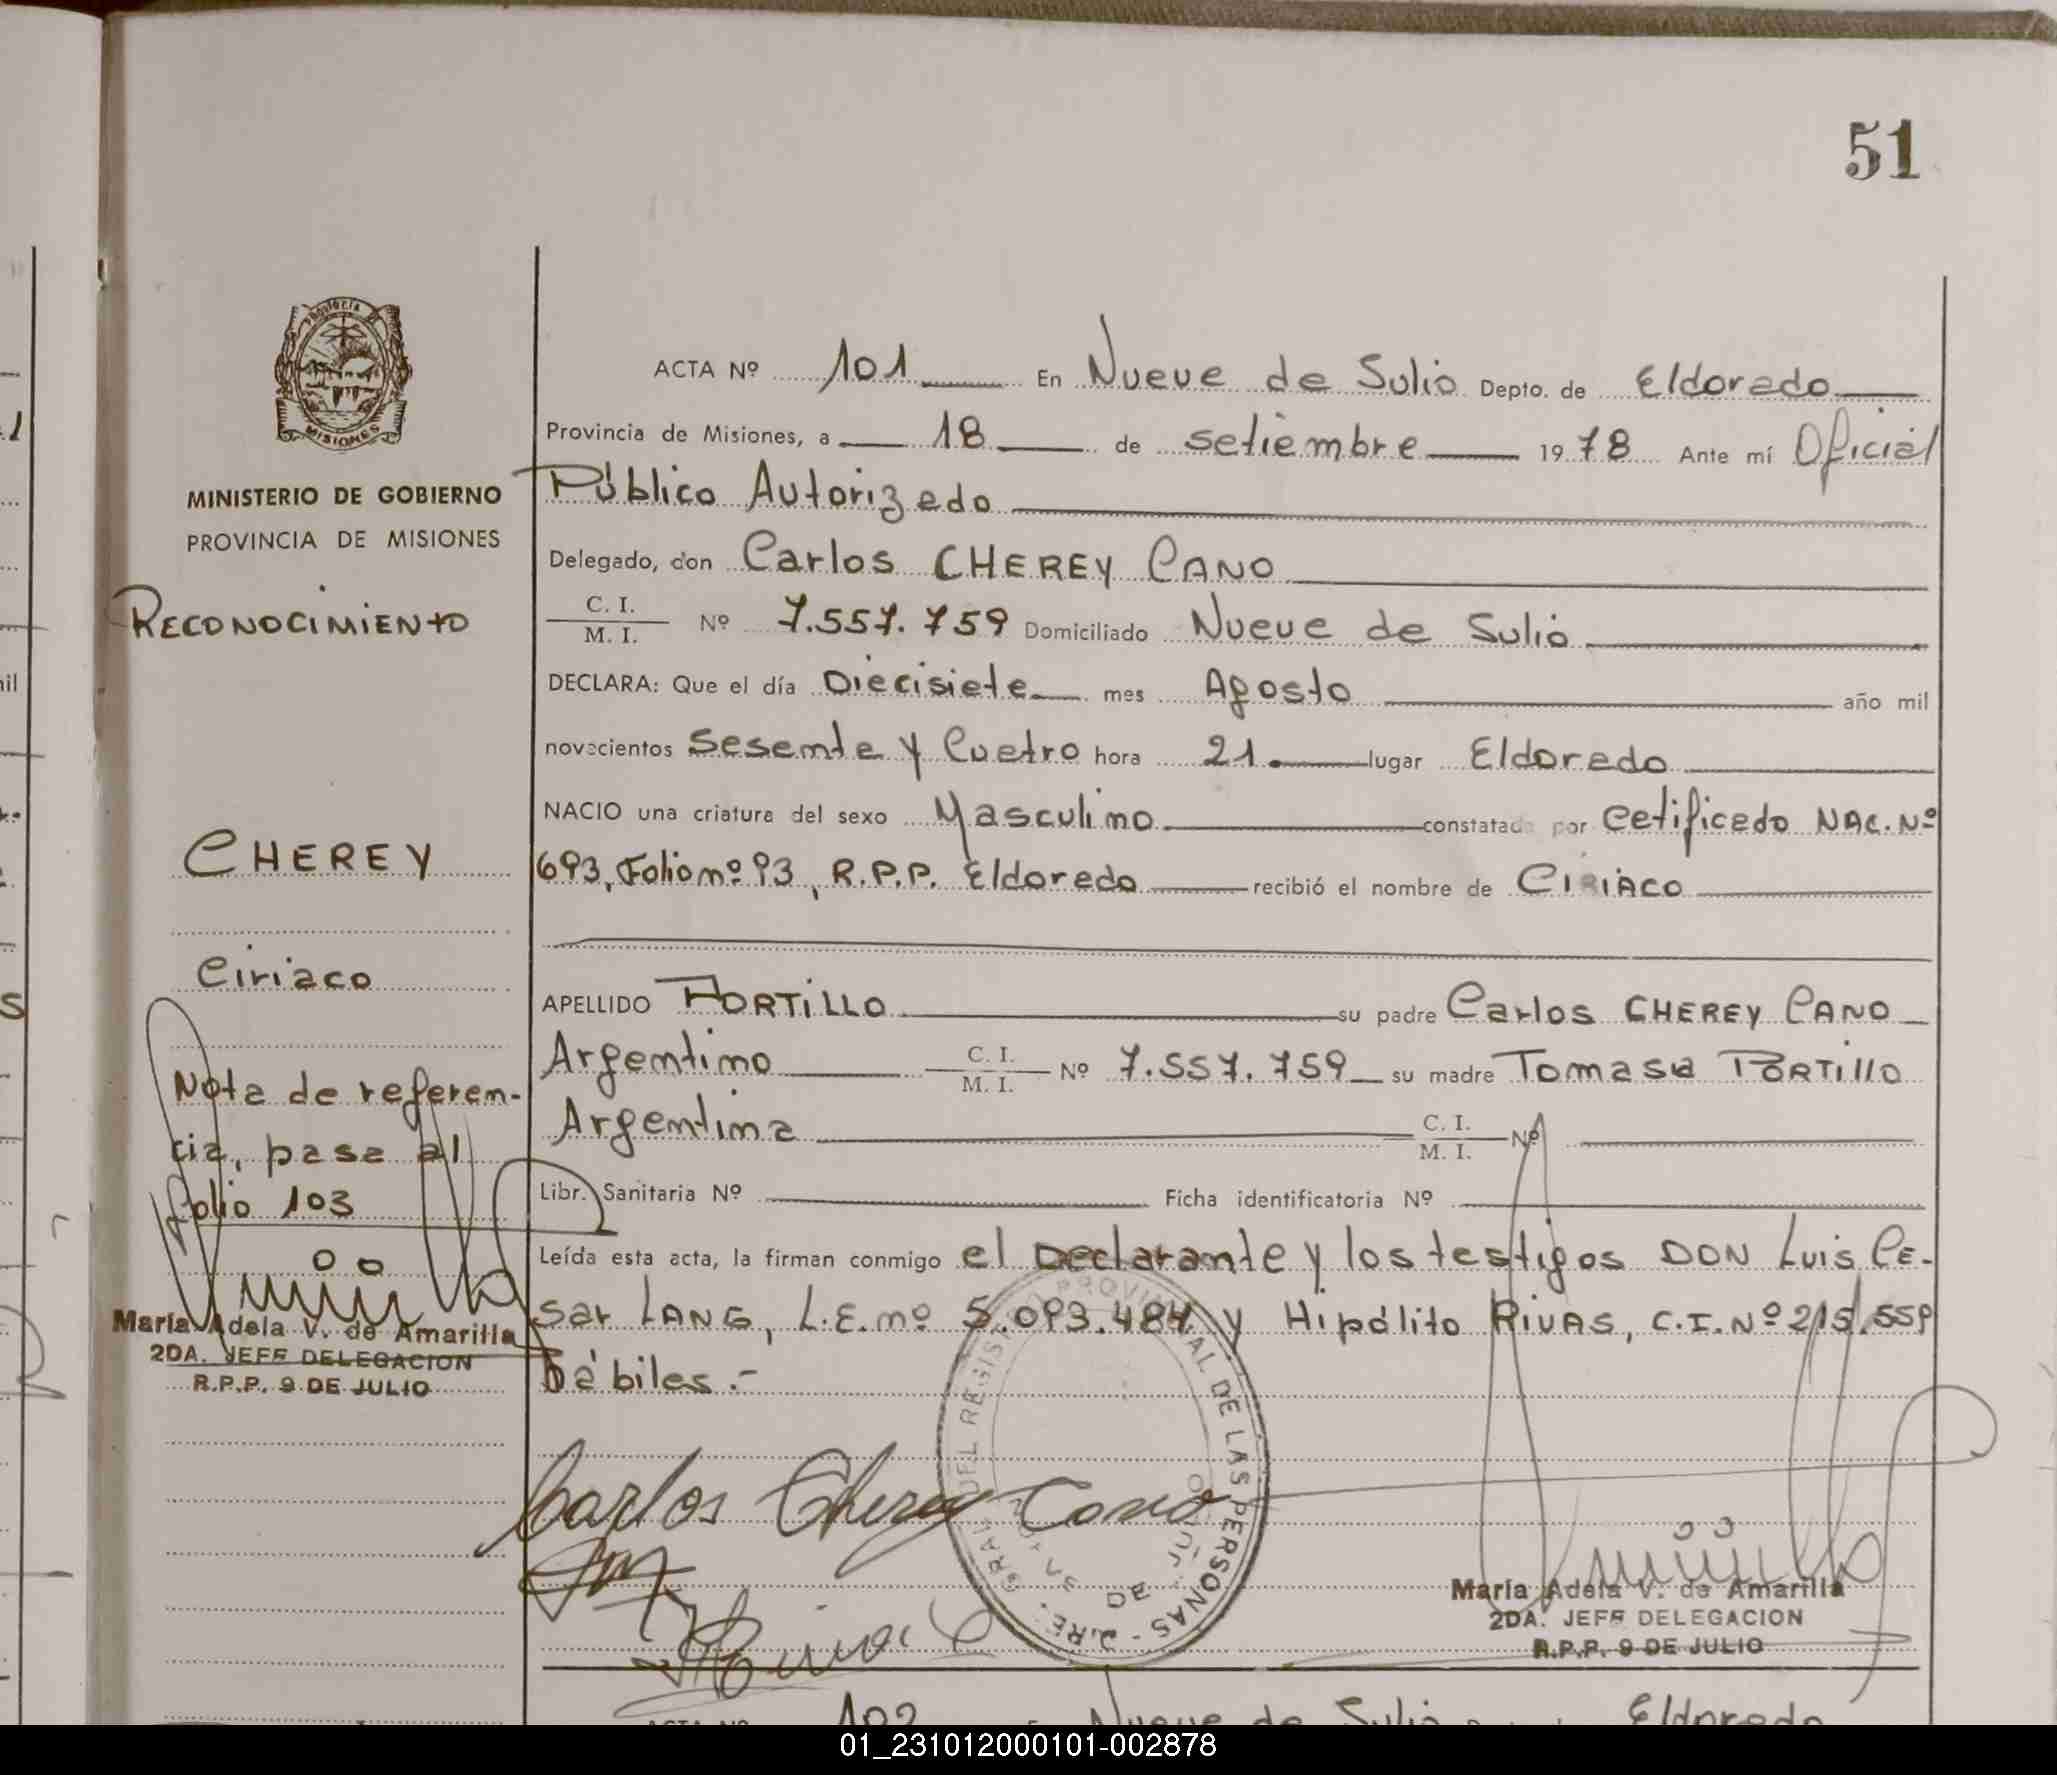 51
ACTA Nº 101 En Nueve de Julio Depto. de Eldorado
Provincia de Misiones, a 18 de setiembre 1978 Ante mí Oficial
Público Autorizado
Delegado, don Carlos CHEREY CANO
C. I.
M. I. Nº 7.557.759 Domiciliado Nueve de Julio
DECLARA: Que el día Diecisiete mes Agosto año mil
novecientos Sesenta y Cuatro hora 21. lugar Eldorado
NACIO una criatura del sexo Masculino constatada por Cetificado NAC. Nº
693, Folio nº 93, R.P.P. Eldorado recibió el nombre de CIRIACO
APELLIDO PORTILLO su padre Carlos CHEREY CANO
Argentino C. I. M. I. Nº 7.557.759 su madre Tomasa PORTILLO
Argentina C. I. M. I. Nº
Libr. Sanitaria Nº Ficha identificatoria Nº
Leída esta acta, la firman conmigo el Declarante y los testigos DON Luis Ce-
sar LANG, L.E. nº 5.093.484 y Hipólito RIVAS, C.I. Nº 215.559
hábiles.-
Carlos Cherey Cano
GRAL. DEL REGISTRO PROVINCIAL DE LAS PERSONAS
NUEVE DE JULIO
María Adela V. de Amarilla
2DA. JEFE DELEGACION
R.P.P. 9 DE JULIO
MISIONES
MINISTERIO DE GOBIERNO
PROVINCIA DE MISIONES
RECONOCIMIENTO
CHEREY
Ciriaco
Nota de referen-
cia, pasa al
folio 103
María Adela V. de Amarilla
2DA. JEFE DELEGACION
R.P.P. 9 DE JULIO
102 Nueve de Julio Eldorado
01_231012000101-002878